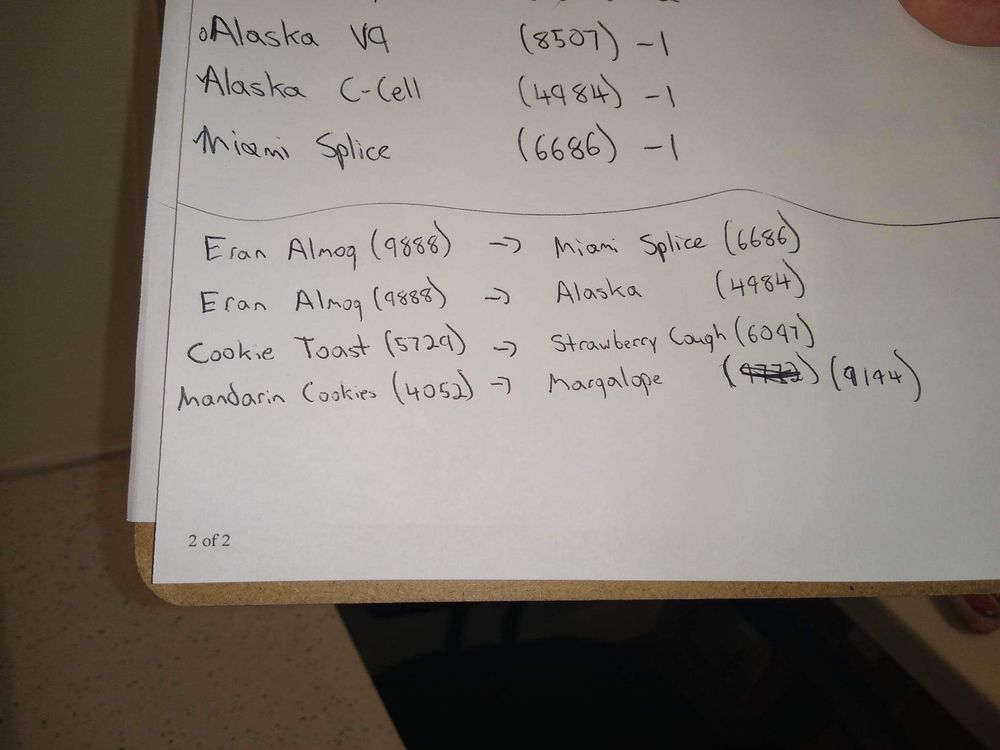 Alaska V9 (8507) -1
Alaska C-Cell (4984) -1
Miami Splice (6686) -1
Eran Almog (9888) → Miami Splice (6686)
Eran Almog (9888) → Alaska (4984)
Cookie Toast (5729) → Strawberry Cough (6047)
Mandarin Cookies (4052) → Margalope (9772) (9144)
2 of 2